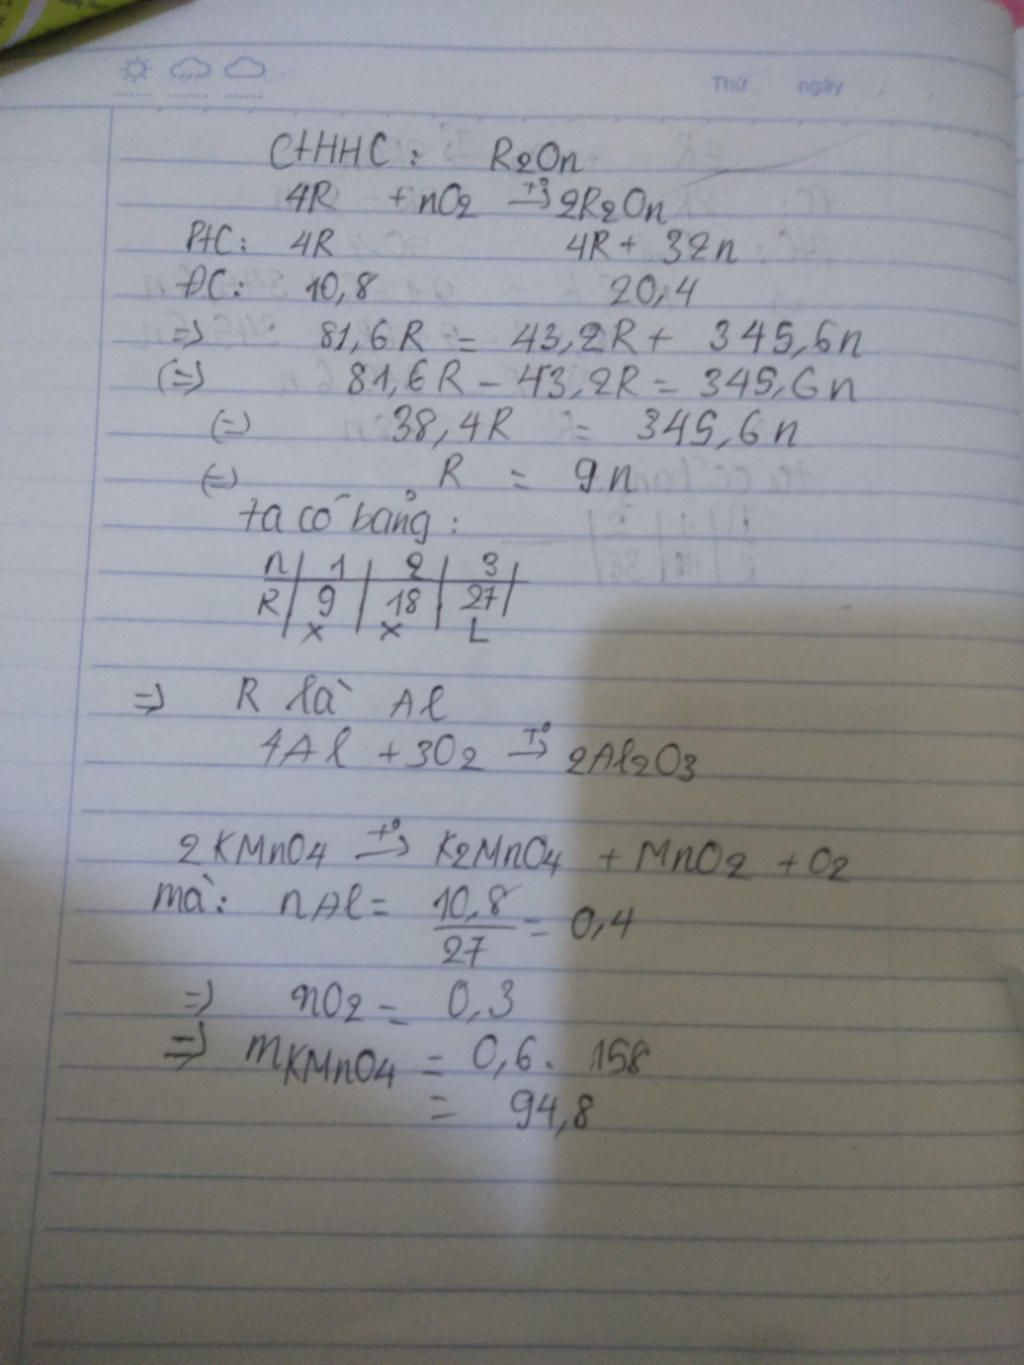 Thứ ngày
CTHHC: R2On
4R + nO2 →t° 2R2On
PTC: 4R 4R + 32n
ĐC: 10,8 20,4
=> 81,6R = 43,2R + 345,6n
(=) 81,6R - 43,2R = 345,6n
(=) 38,4R = 345,6n
(=) R = 9n
ta có bảng:
n | 1 | 2 | 3 |
R | 9 | 18 | 27 |
x x L
=> R là Al
4Al + 3O2 →T° 2Al2O3
2KMnO4 →t° K2MnO4 + MnO2 + O2
mà: nAl = 10,8/27 = 0,4
=> nO2 = 0,3
=> mKMnO4 = 0,6. 158
= 94,8